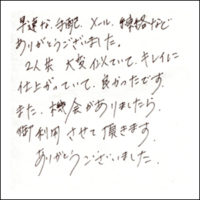 早速な、手配、メール、連絡など
ありがとうございました。
2人共 大変似ていて、キレイに
仕上がっていて、良かったです。
また、機会がありましたら、
御利用させて頂きます。
ありがとうございました。